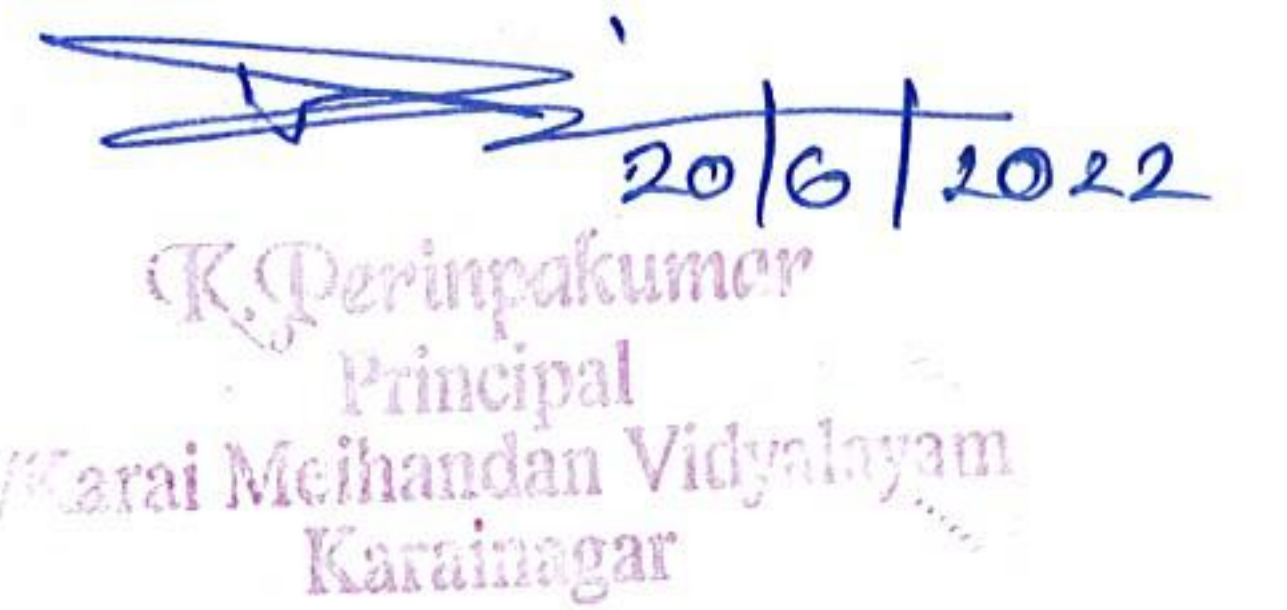 20/6/2022
K. Perinpakumar
Principal
Karai Meihandan Vidyalayam
Karainagar